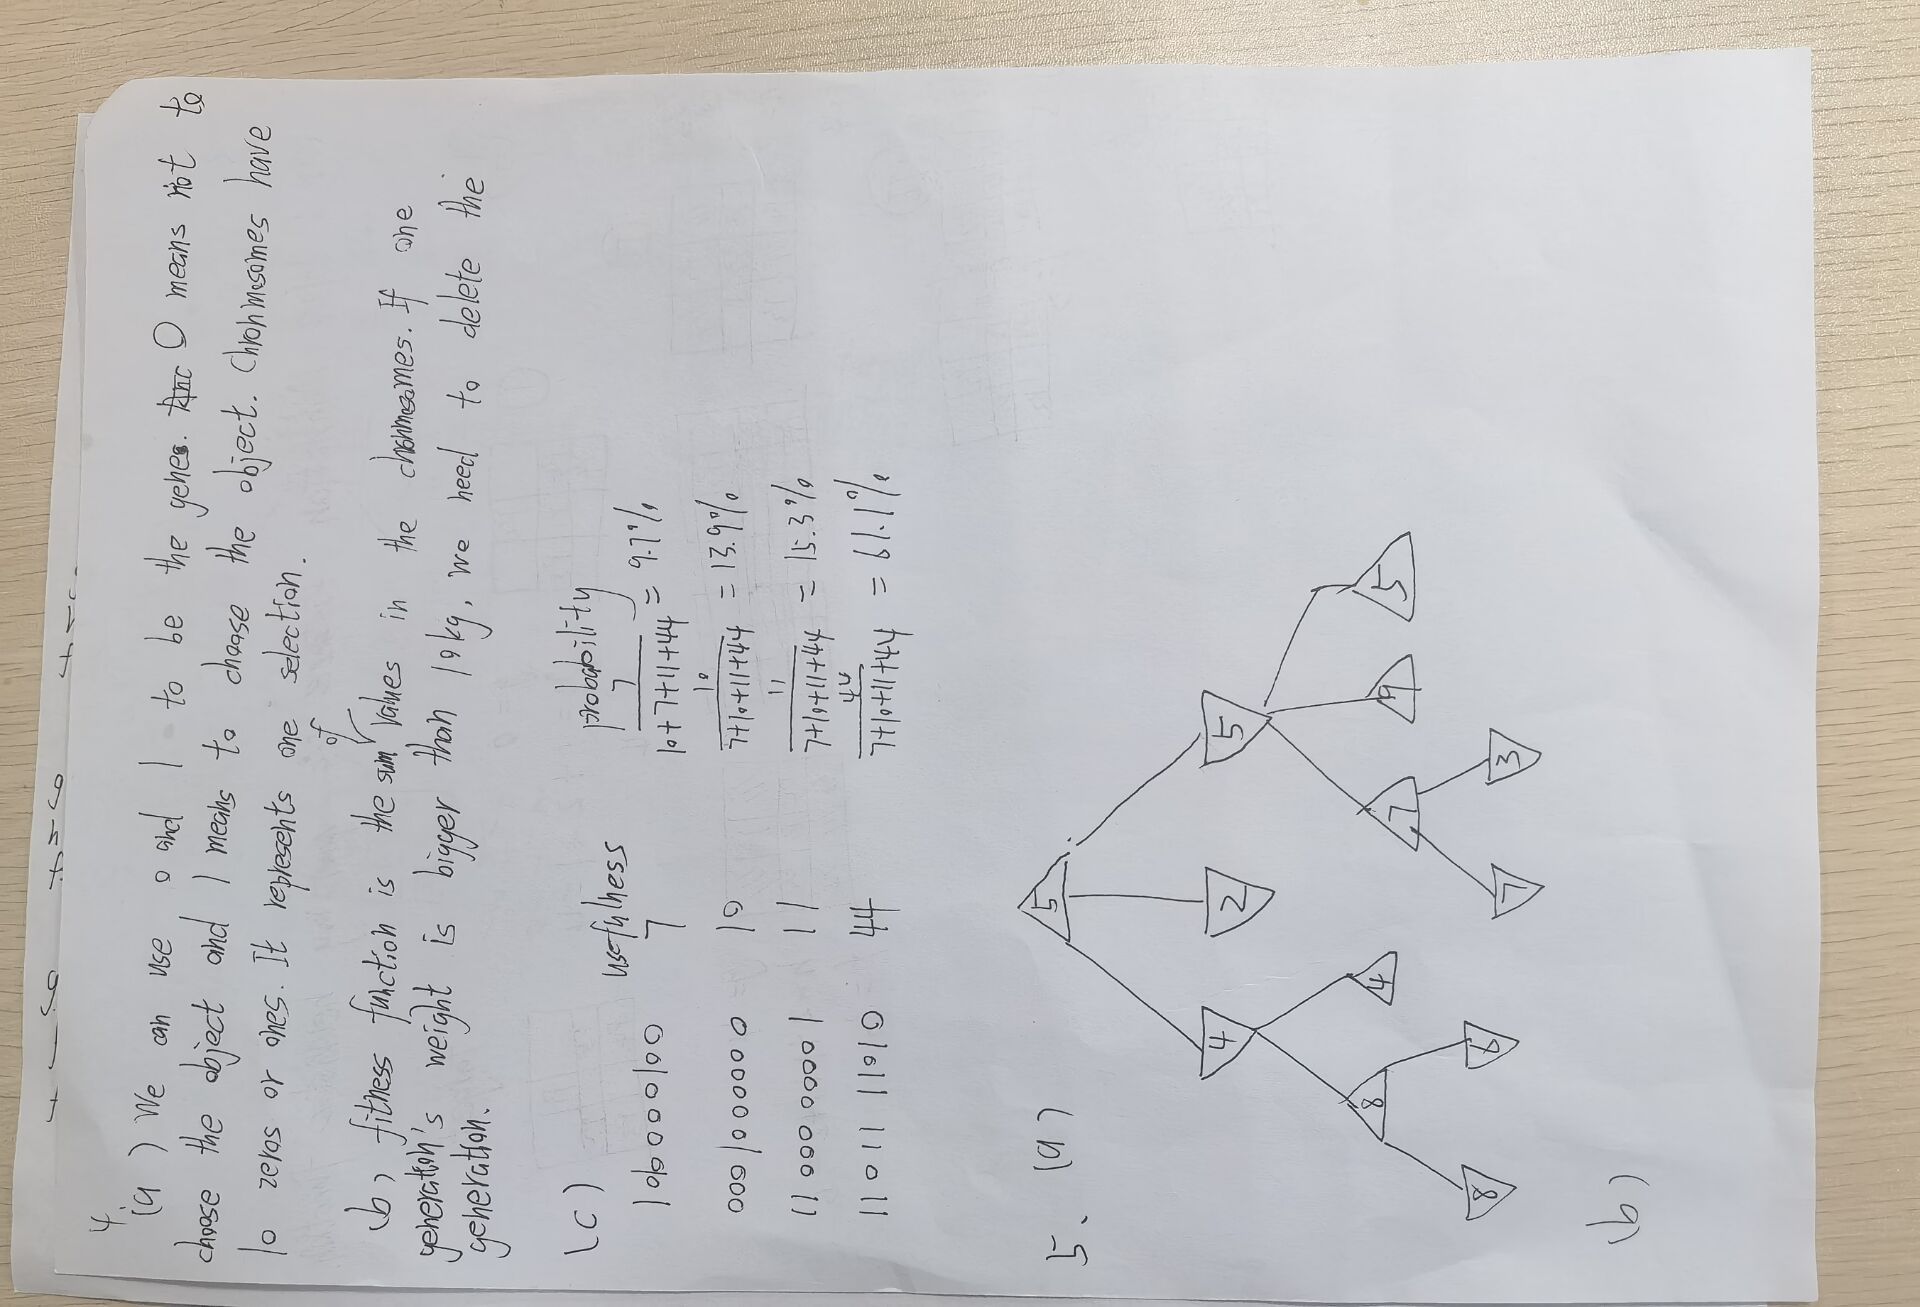 4
(a) We can use 0 and 1 to be the genes. 0 means not to
choose the object and 1 means to choose the object. Chronmosomes have
10 zeros or ones. It represents one selection.
(b) fitness function is the sum of values in the chronmosomes. If one
generation's weight is bigger than 10kg, we need to delete the
generation.
(c) usefulness probability
1000000100 7 7/10+7+11+44 = 9.7%
0001000000 10 10/7+10+11+44 = 13.9%
1100000001 11 11/7+10+11+44 = 15.3%
1101111010 44 44/7+10+11+44 = 61.1%
5. (a)
5
4 2 5
8 4 7 9 5
8 6 7 3
(b)